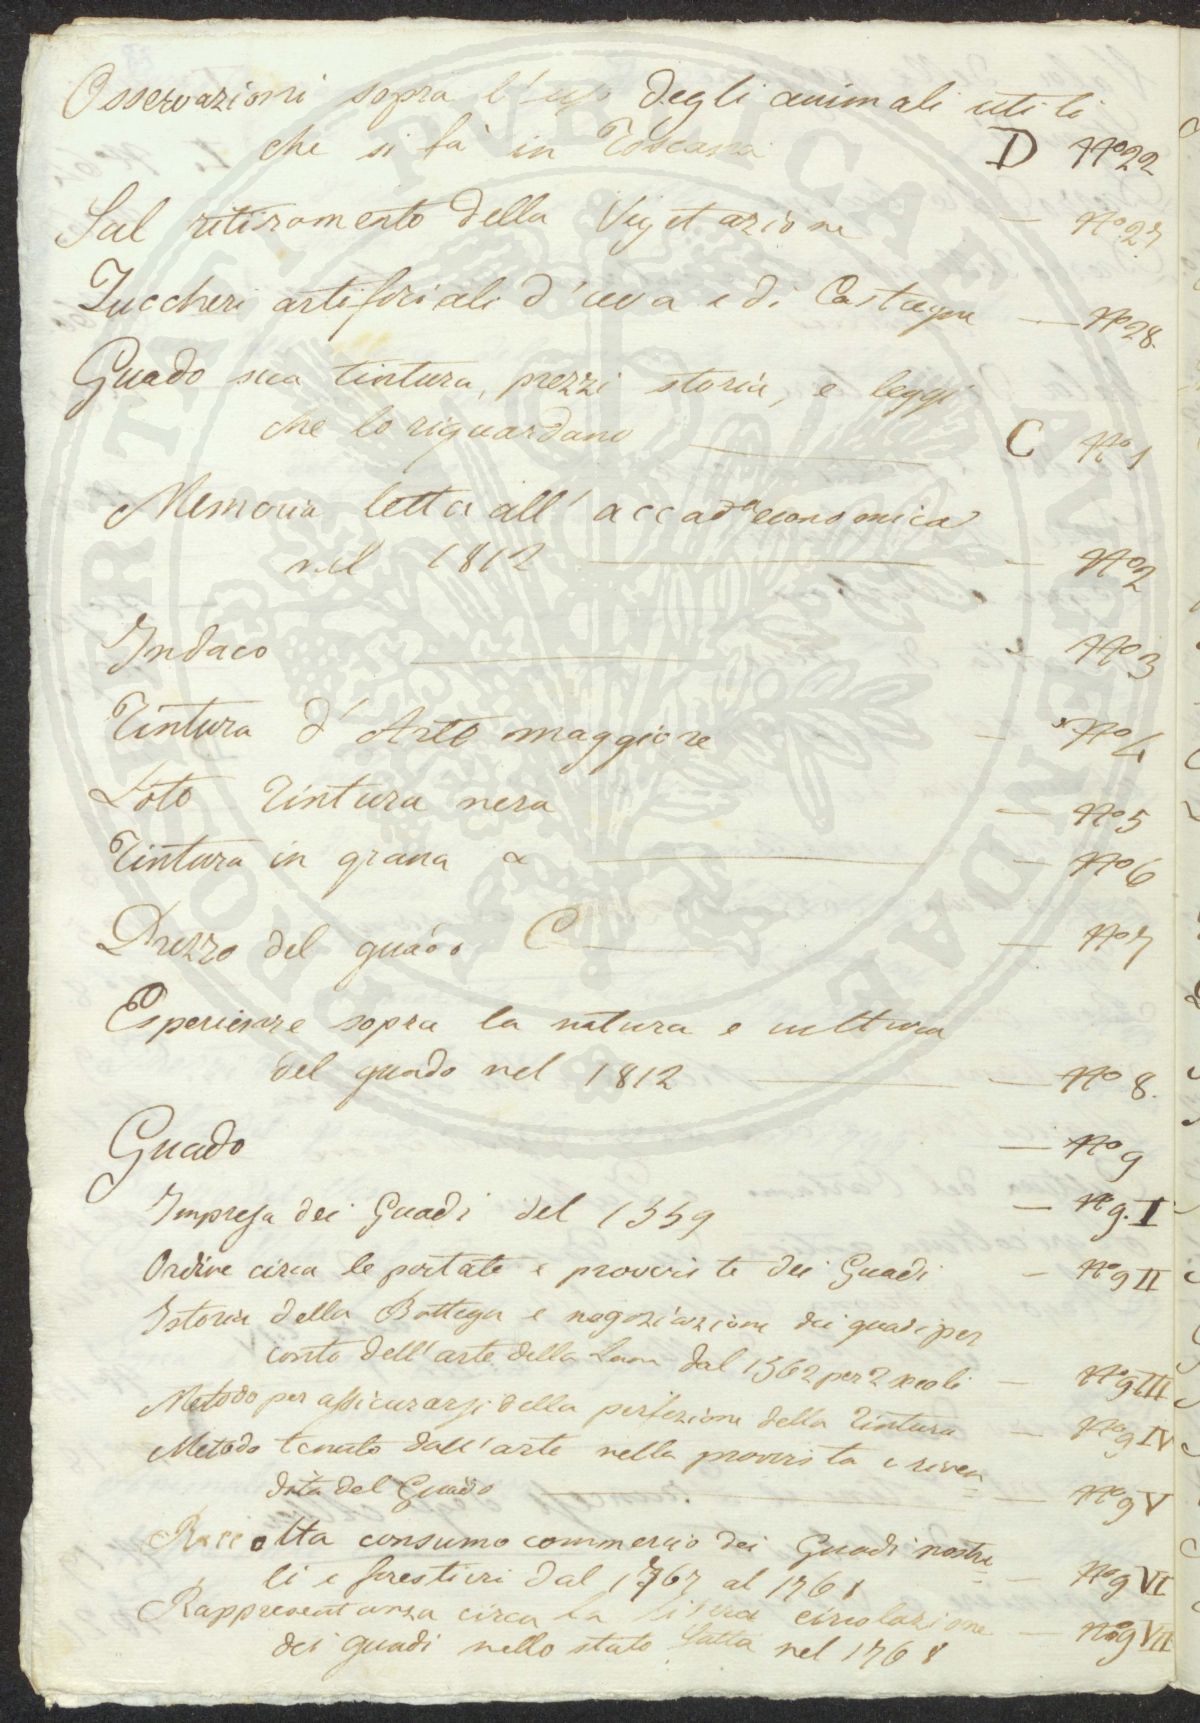 Osservazioni sopra l'uso degli animali utili
che si fà in Toscana D Nº 22
Sul ritiramento della Vegetazione — Nº 27
Zuccheri artificiali d'uva e di Castagne — Nº 28.
Guado sua tintura, prezzi storia, e leggi
che lo riguardano C Nº 1
Memoria letta all' accad.a economica
nel 1812 — Nº 2
Indaco Nº 3
Tintura d'Arte maggiore — Nº 4
Loto Tintura nera — Nº 5
Tintura in grana — Nº 6
Prezzo del guado C — Nº 7
Esperienze sopra la natura e cultura
del guado nel 1812 — Nº 8.
Guado — Nº 9
Impresa dei Guadi del 1559 — Nº 9. I
Ordine circa le portate e provviste dei Guadi — Nº 9 II
Istoria della Bottega e negoziazione dei guadi per
conto dell'arte della Lana dal 1562 per 2 secoli — Nº 9 III
Metodo per assicurarsi della perfezione della Tintura — Nº 9 IV
Metodo tenuto dall'arte nella provvista e riven
dita del Guado — Nº 9 V
Raccolta consumo commercio dei Guadi nostra
li e forestieri dal 1767 al 1768 — Nº 9 VI
Rappresentanza circa la libera circolazione
dei guadi nello stato fatta nel 1768 — Nº 9 VII
PROSPERITATI PUBLICAE AUGENDAE